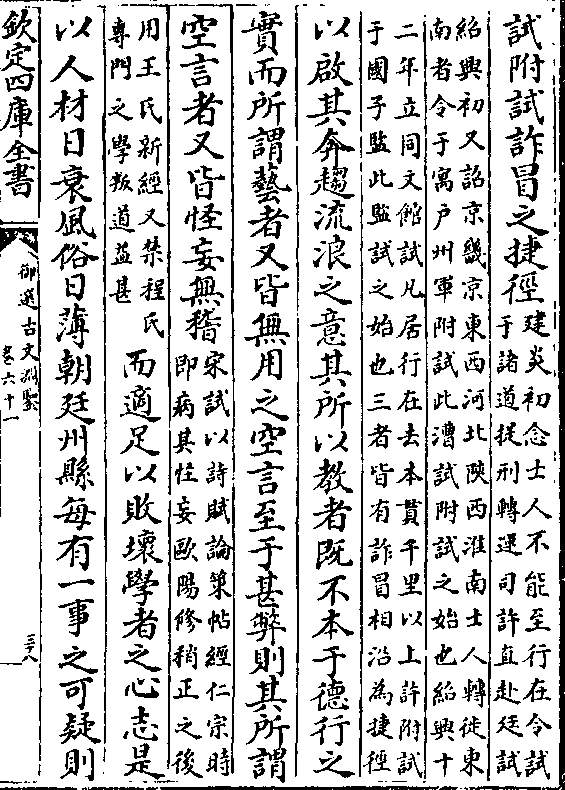 試附試詐冒之捷徑
建炎初念士人不能至行在令試
于諸道提刑轉運司許直赴廷試
紹興初又詔京畿京東西河北陜西淮南士人轉徙東
南者令于寓户州軍附試此漕試附試之始也紹興十
二年立同文館試凡居行在去本貫千里以上許附試
于國子監此監試之始也三者皆有詐冒相沿為捷徑
以啟其奔趨流浪之意其所以教者既不本于德行之
實而所謂藝者又皆無用之空言至于甚弊則其所謂
空言者又皆怪妄無稽
宋試以詩賦論策帖經仁宗時
即病其怪妄歐陽修稍正之後
用王氏新經又禁程氏
專門之學叛道益甚
而適足以敗壞學者之心志是
以人材日衰風俗日薄朝廷州縣每有一事之可疑則
欽定四庫全書
御選古文淵鑒
卷六十一
三十八